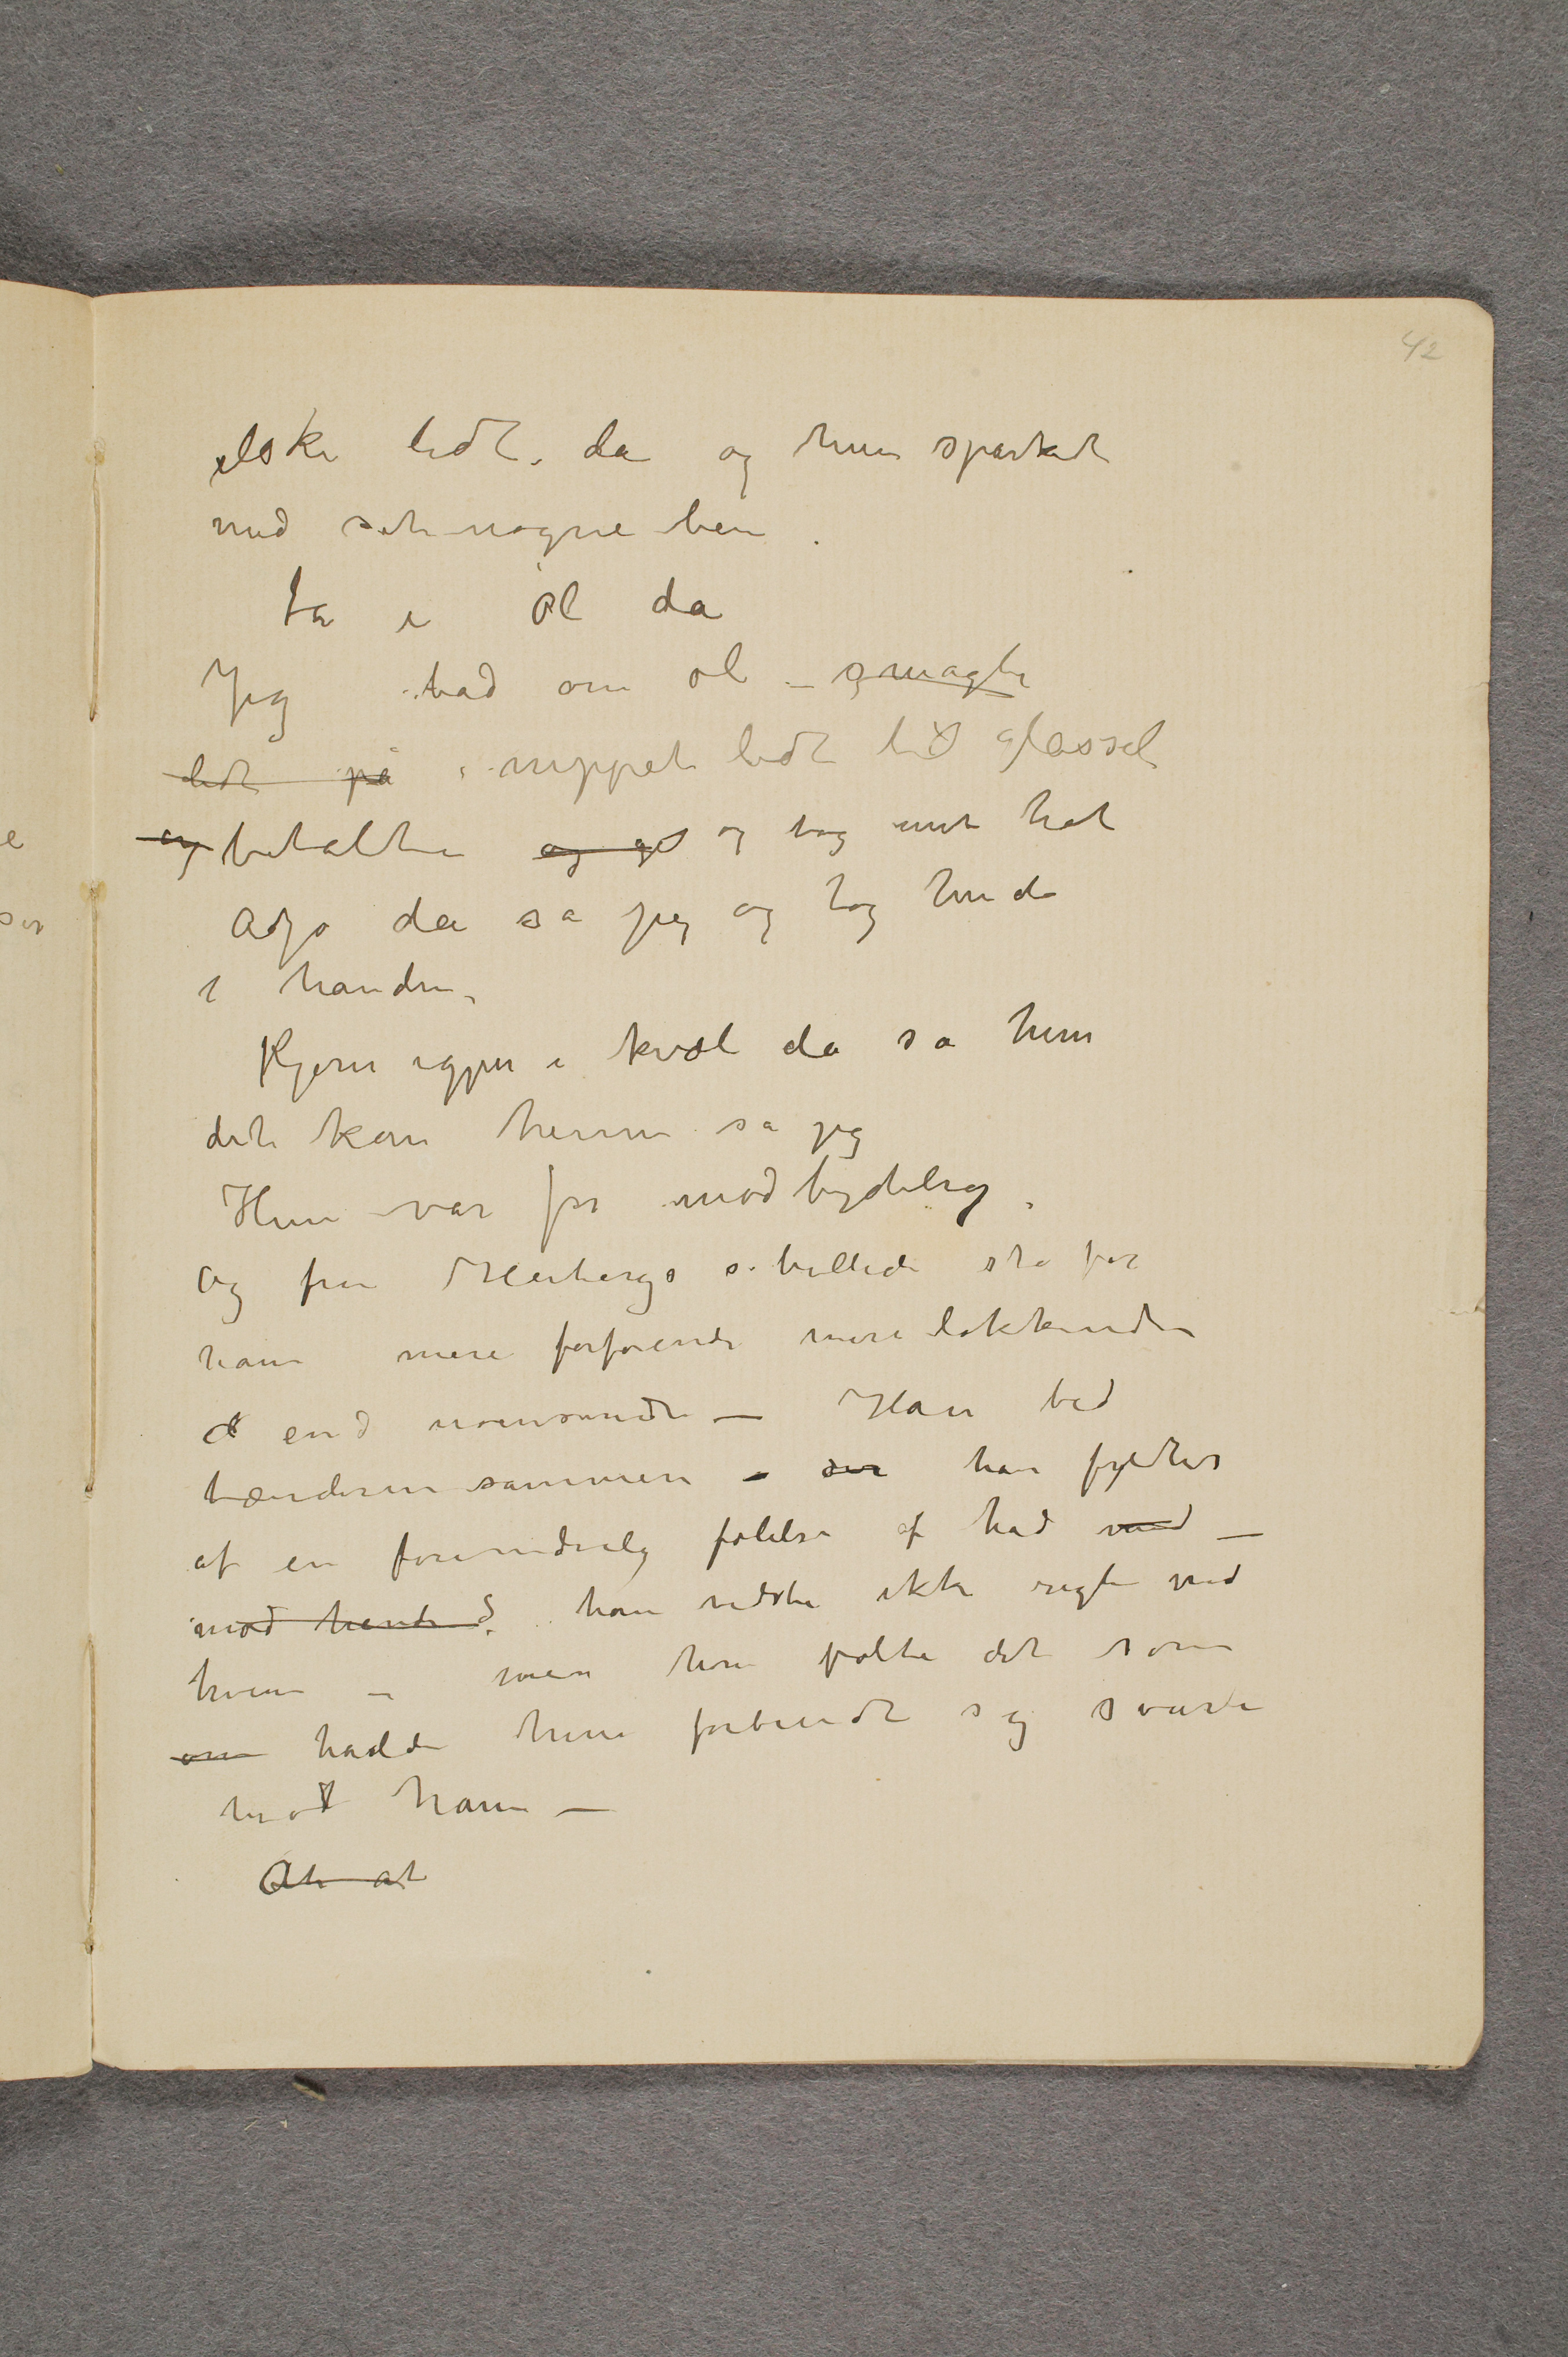 42
elske lidt da og hun sparked
med sit nøgne ben.
ta i øl da
Jeg bad om øl – smagte
lidt på nippet lidt til glasset
og betalte og g og tog min hat
Adjø da sa jeg og tog hende
i hånden.
Kjom igjen i kvæl da sa hun
det kan hænne sa jeg
Hun var for modbydelig.
Og fru Heibergs billede sto for
ham mere forførende mere lokkende
end nornsinde – Han bed
tænderne sammen – han fyldtes
af en forunderlig følelse af had med –
mod hende. han vidste ikke rigti ved
hvem – men han følte det som
om hadde hun forbrudt sig svært
mod ham –
At at
e